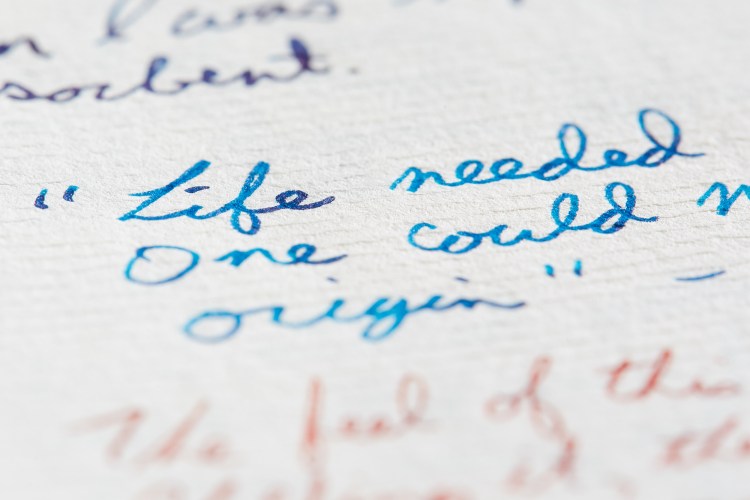 I was
sorbent.
"Life needed
One could
origin" –
The feel of this